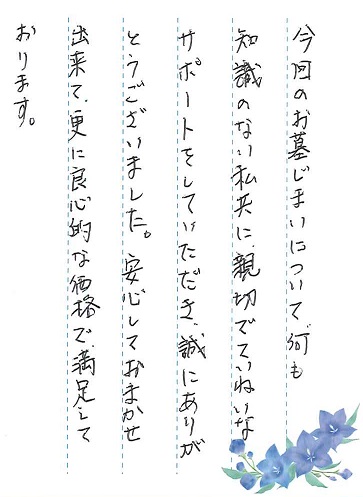 今回のお墓じまいについて、何も
知識のない私共に、親切でていねいな
サポートをしていただき、誠にありが
とうございました。安心しておまかせ
出来て、更に良心的な価格で、満足して
おります。